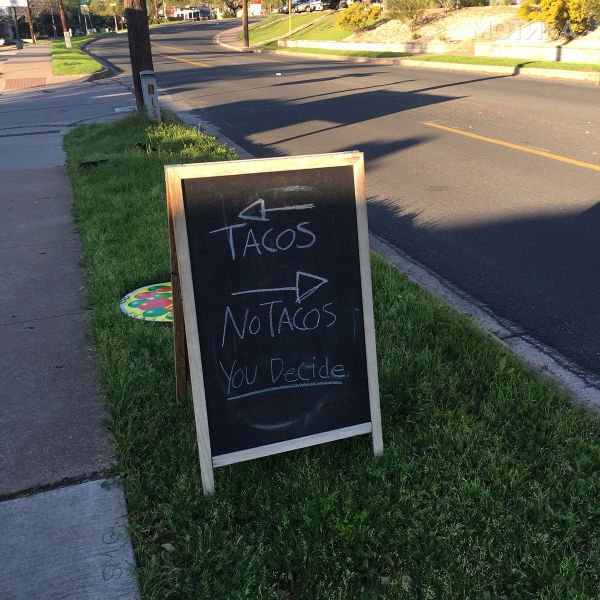 Tacos
No Tacos
You Decide.